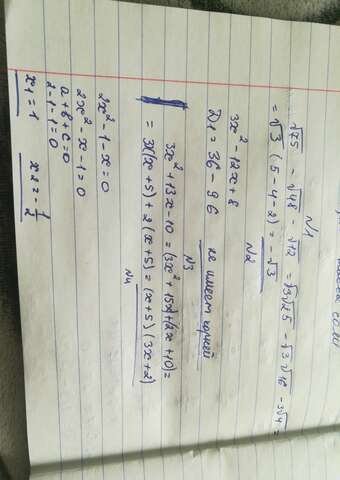 N1
√75 - √48 - √12 = √3√25 - √3√16 - √3√4 =
= √3 (5-4-2) = -√3
N2
3x² - 12x + 8
D1 = 36 - 96 не имеет корней
N3
3x² + 13x - 10 = (3x² + 15x) + (2x + 10) =
= 3x(x+5) + 2(x+5) = (x+5)(3x+2)
N4
2x² - 1 - x = 0
2x² - x - 1 = 0
a + b + c = 0
2 - 1 - 1 = 0
x1 = 1 x2 = -1/2